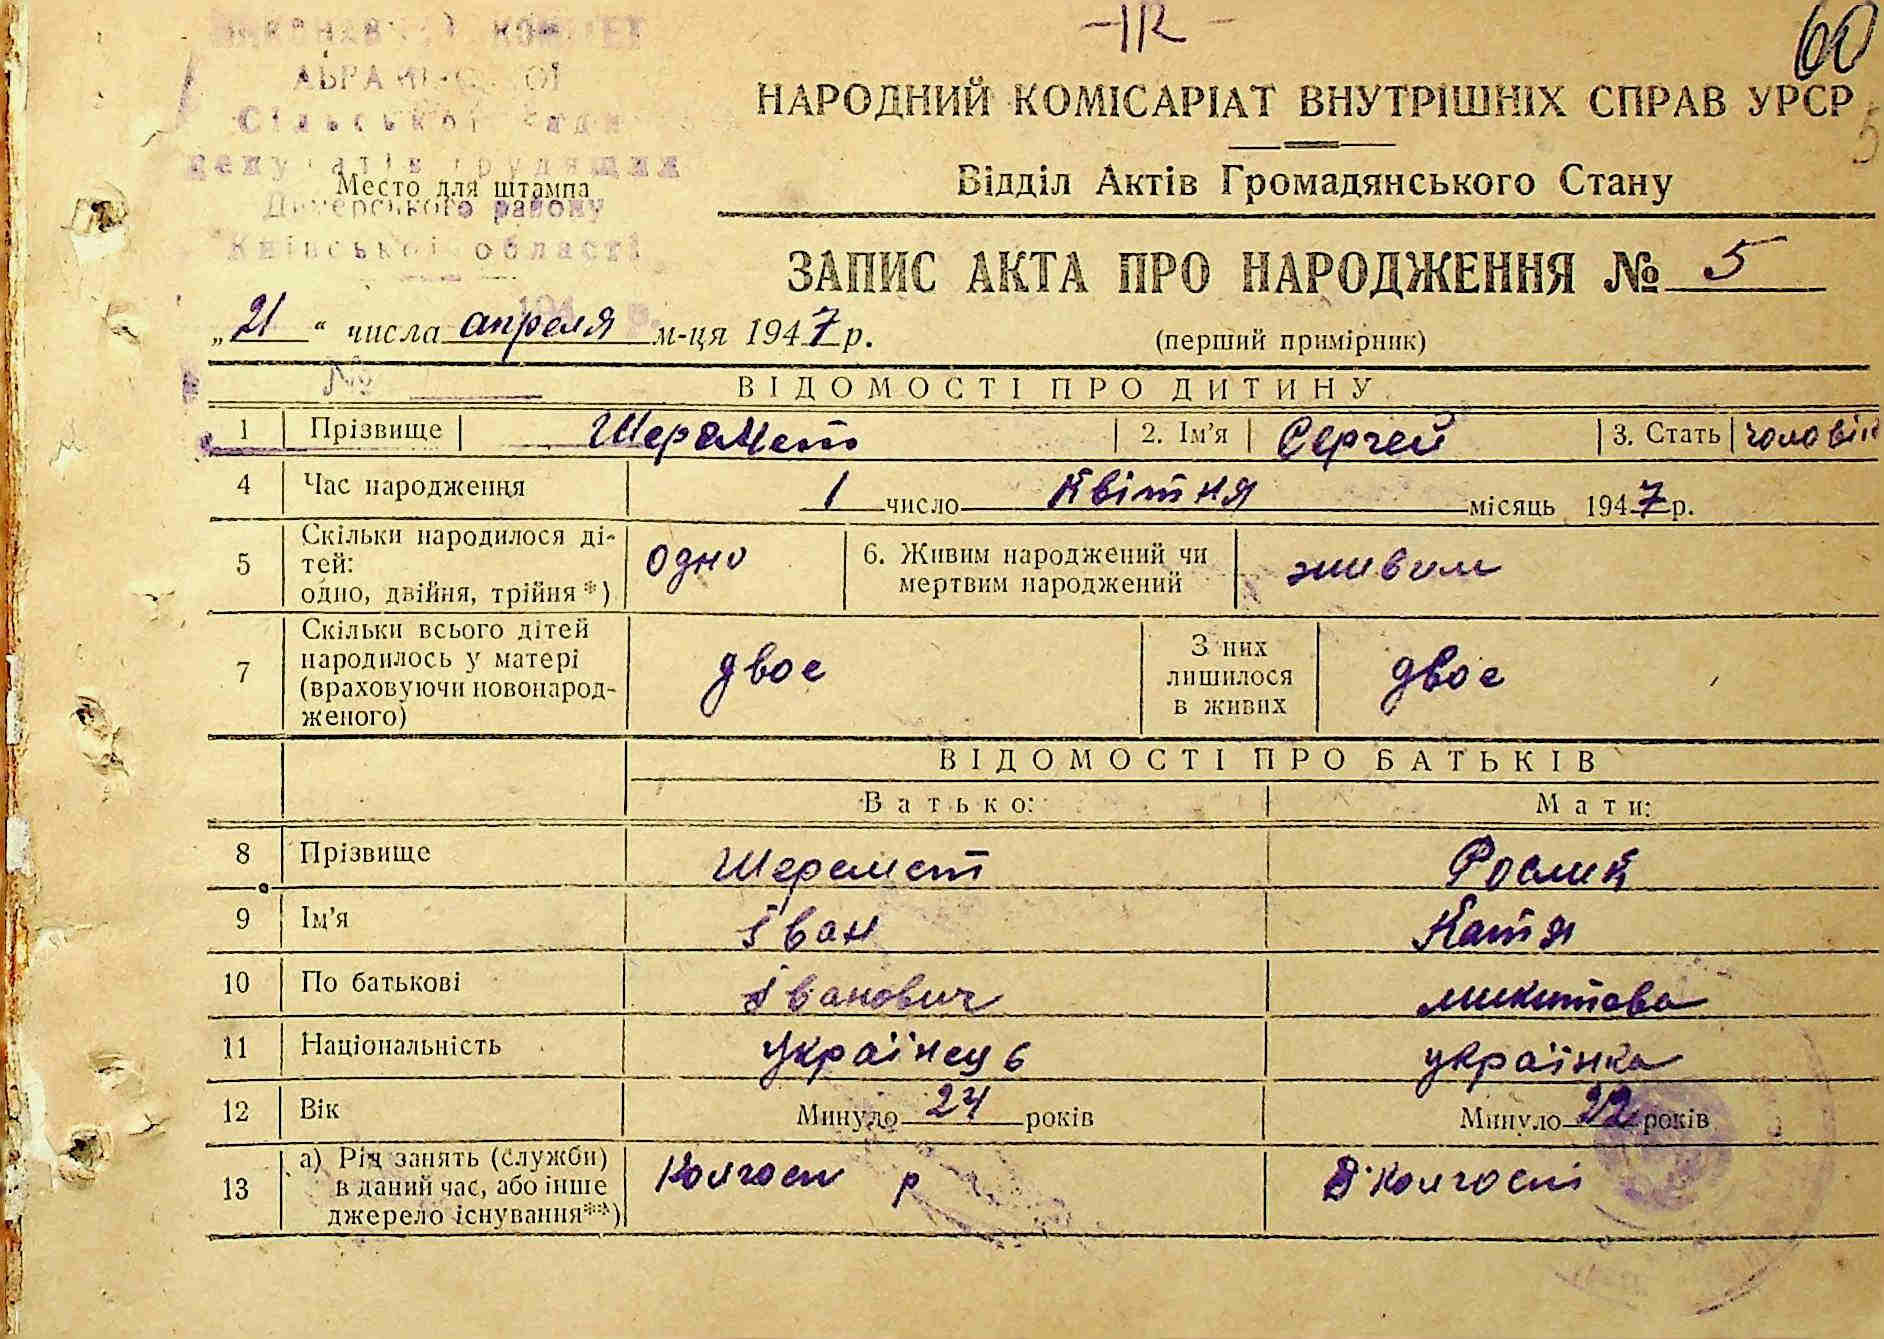 -12-
60
НАРОДНИЙ КОМІСАРІАТ ВНУТРІШНІХ СПРАВ УРСР
5
Відділ Актів Громадянського Стану
Сільської
трудящих
Место для штампа
Димерського району
Київської області
ЗАПИС АКТА ПРО НАРОДЖЕННЯ № 5
„21“ числа апреля м-ця 1947 р.
(перший примірник)
№
ВІДОМОСТІ ПРО ДИТИНУ
1 Прізвище Шеремет 2. Ім’я Сергей 3. Стать чоловіч
4 Час народження 1 число Квітня місяць 1947 р.
5 Скільки народилося ді-
тей:
одно, двійня, трійня*) одно 6. Живим народжений чи
мертвим народжений живим
7 Скільки всього дітей
народилось у матері
(враховуючи новонарод-
женого) двое З них
лишилося
в живих двое
ВІДОМОСТІ ПРО БАТЬКІВ
Батько: Мати:
8 Прізвище Шеремет Рослик
9 Ім’я Іван Катя
10 По батькові Іванович микитова
11 Національність українець українка
12 Вік Минуло 24 років Минуло 22 років
13 а) Рід занять (служби)
в даний час, або інше
джерело існування**) Колгосп р В колгоспі